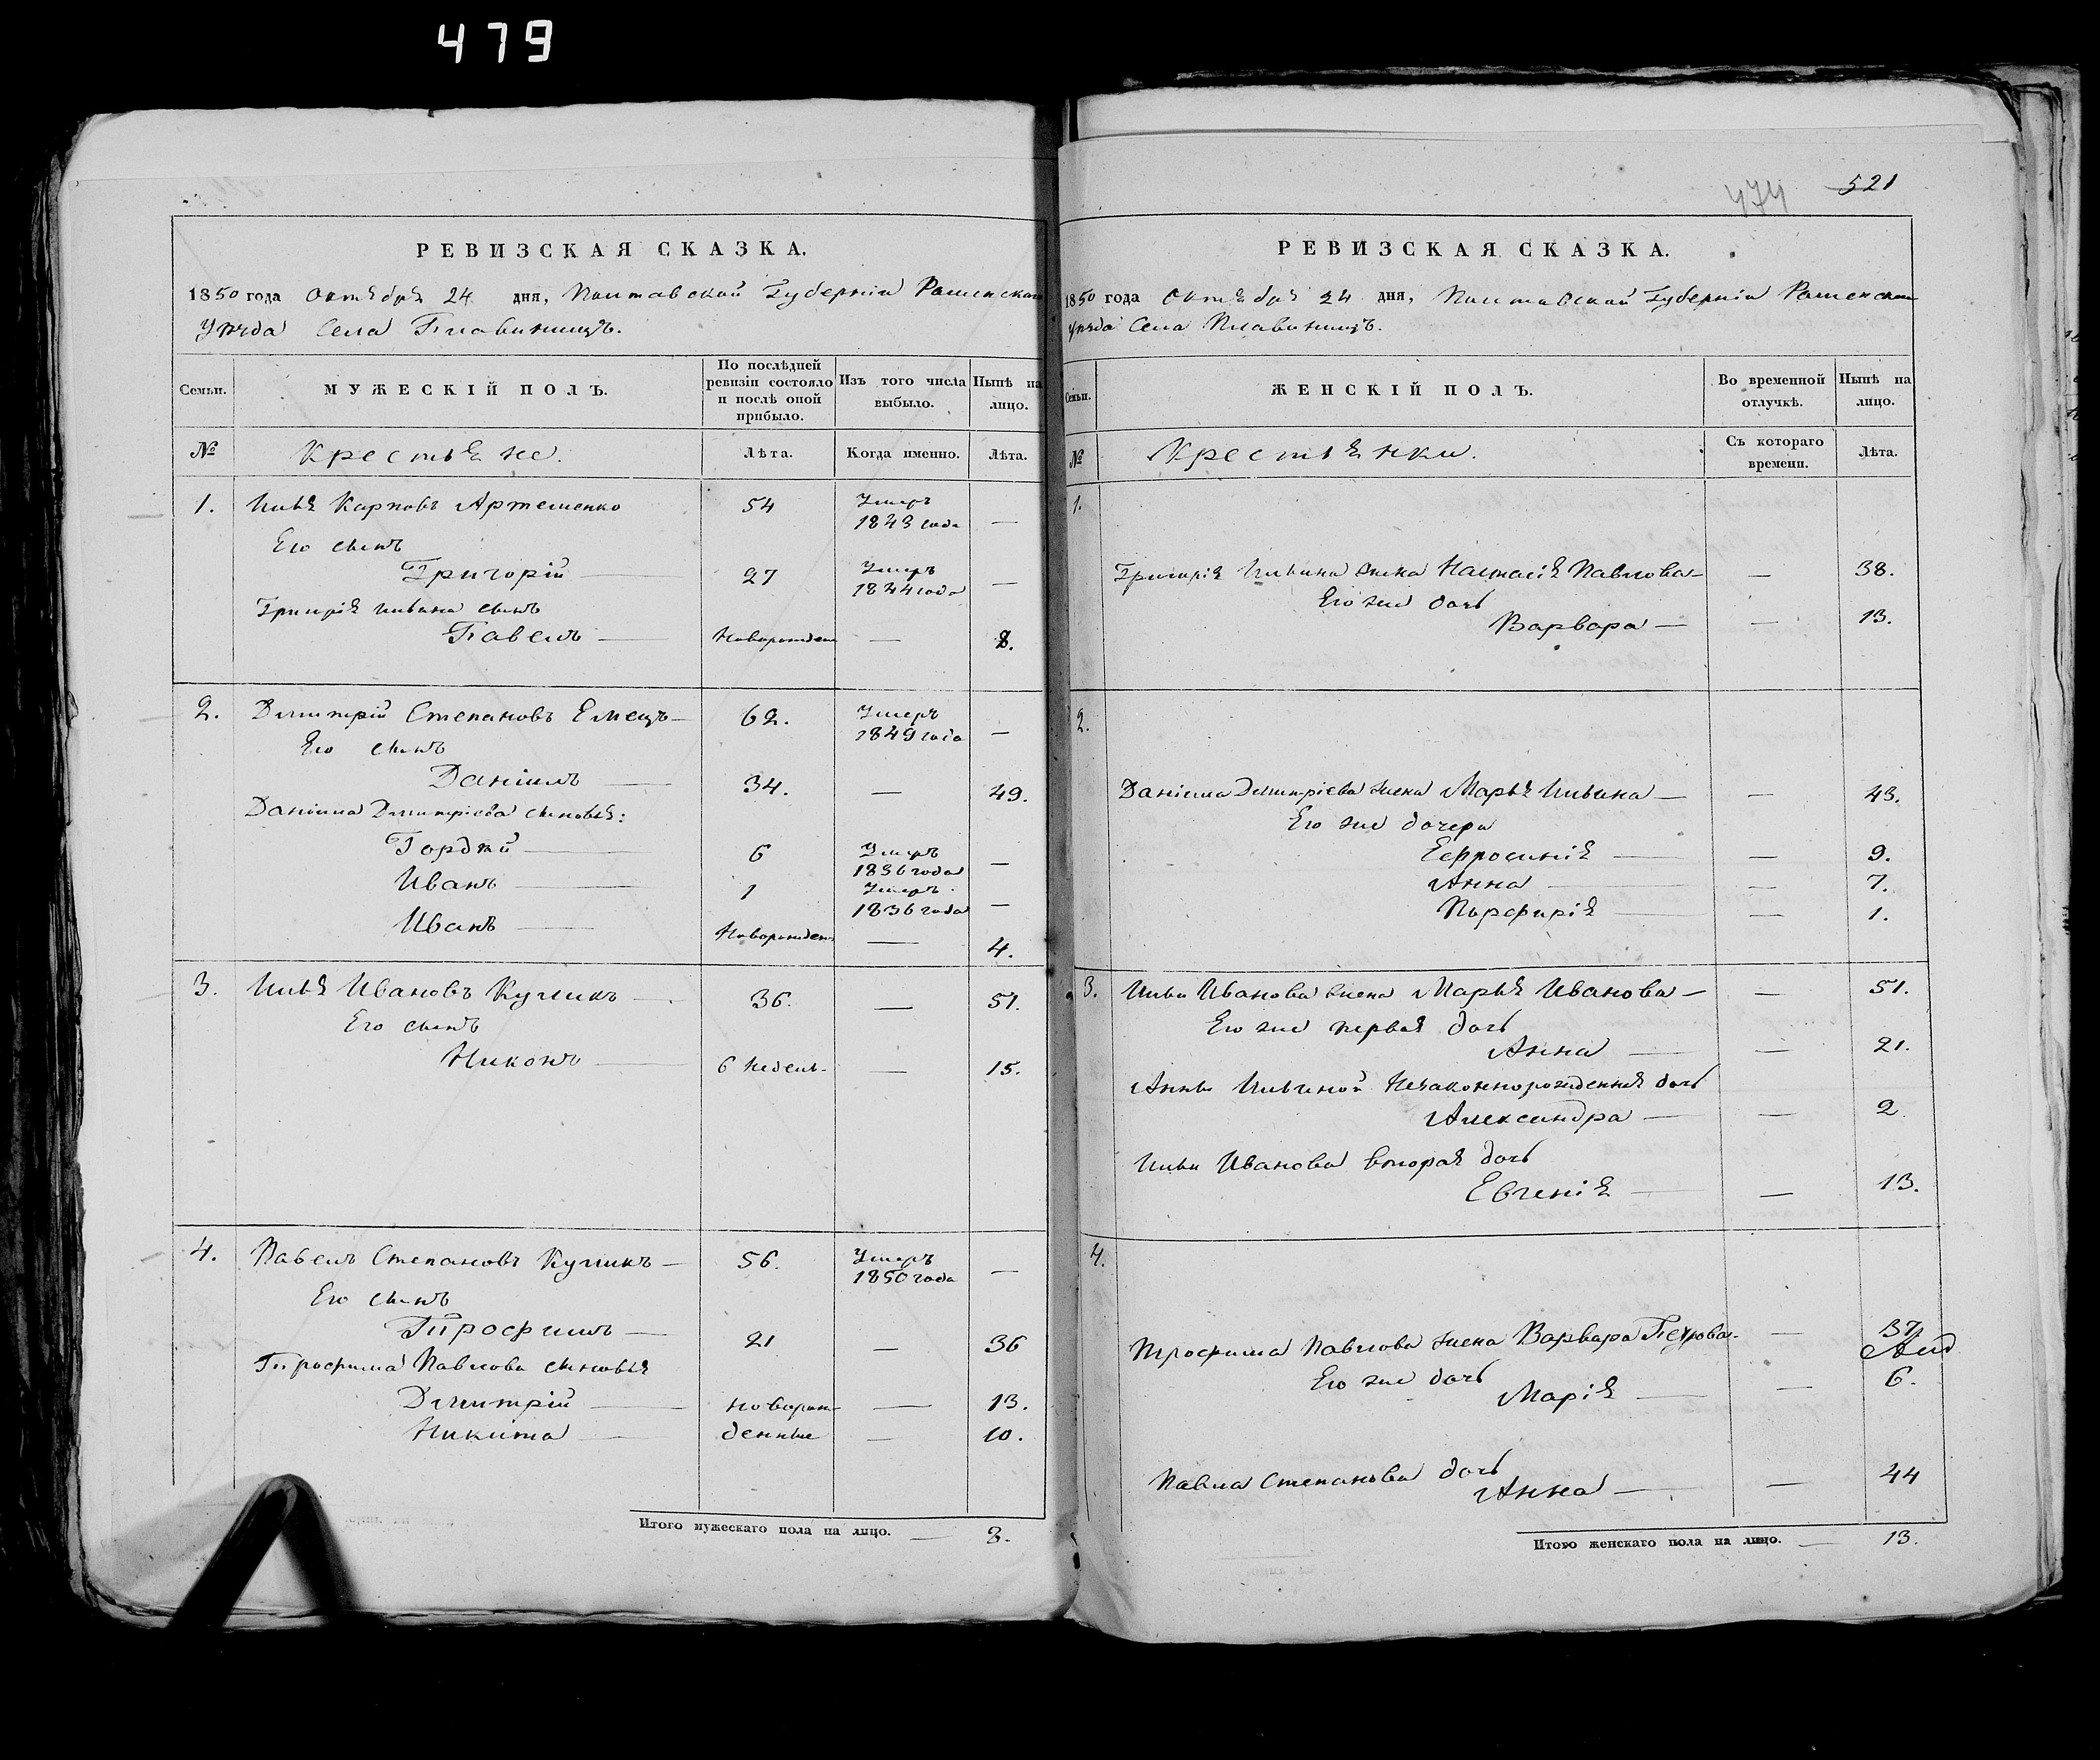 479
РЕВИЗСКАЯ СКАЗКА.
1850 года Октября 24 дня, Полтавской Губерніи Роменскаго
Уѣзда Села Плавинищъ.
Семьи.
МУЖЕСКІЙ ПОЛЪ.
По послѣдней ревизіи состояло и послѣ оной прибыло.
Изъ того числа выбыло.
Нынѣ на лицо.
№
Крестьяне.
Лѣта.
Когда именно.
Лѣта.
1. Илья Карповъ Артеменко 54 Умеръ 1843 года —
Его сынъ
Григорій — 27 Умеръ 1844 года —
Григорія Ильина сынъ
Павелъ — Новорожден — 8.
2. Дмитрій Степановъ Емецъ — 62. Умеръ 1849 года —
Его сынъ
Даніилъ — 34. — 49.
Даніила Дмитріева сыновья:
Гордѣй — 6 Умеръ 1836 года —
Иванъ — 1 Умеръ 1836 года —
Иванъ — Новорожден — 4.
3. Илья Ивановъ Куликъ — 36. — 51.
Его сынъ
Никонъ — 6 недель — 15.
4. Павелъ Степановъ Куликъ — 56. Умеръ 1850 года —
Его сынъ
Трофимъ — 21 — 36
Трофима Павлова сыновья
Димитрій — новорож — 13.
Никита — денные — 10.
Итого мужескаго пола на лицо. — 8.
474 521
РЕВИЗСКАЯ СКАЗКА.
1850 года Октября 24 дня, Полтавской Губерніи Роменскаго
Уѣзда Села Плавинищъ.
Семьи.
ЖЕНСКІЙ ПОЛЪ.
Во временной отлучкѣ.
Нынѣ на лицо.
№
Крестьянки.
Съ котораго времени.
Лѣта.
1.
Григорія Ильина жена Настасія Павлова — — 38.
Его же дочь
Варвара — — 13.
2.
Даніила Дмитріева жена Марья Ильина — — 43.
Его же дочери
Ефросинія — — 9.
Анна — — 7.
Порфирія — — 1.
3. Ильи Иванова жена Марья Иванова — — 51.
Его же первая дочь
Анна — — 21.
Анны Ильиной Незаконнорожденная дочь
Александра — — 2.
Ильи Иванова вторая дочь
Евгенія — — 13.
4.
Трофима Павлова жена Варвара Петрова — — 37
Его же дочь
Марія — — 6.
Павла Степанова дочь
Анна — — 44
Итого женскаго пола на лицо. — 13.